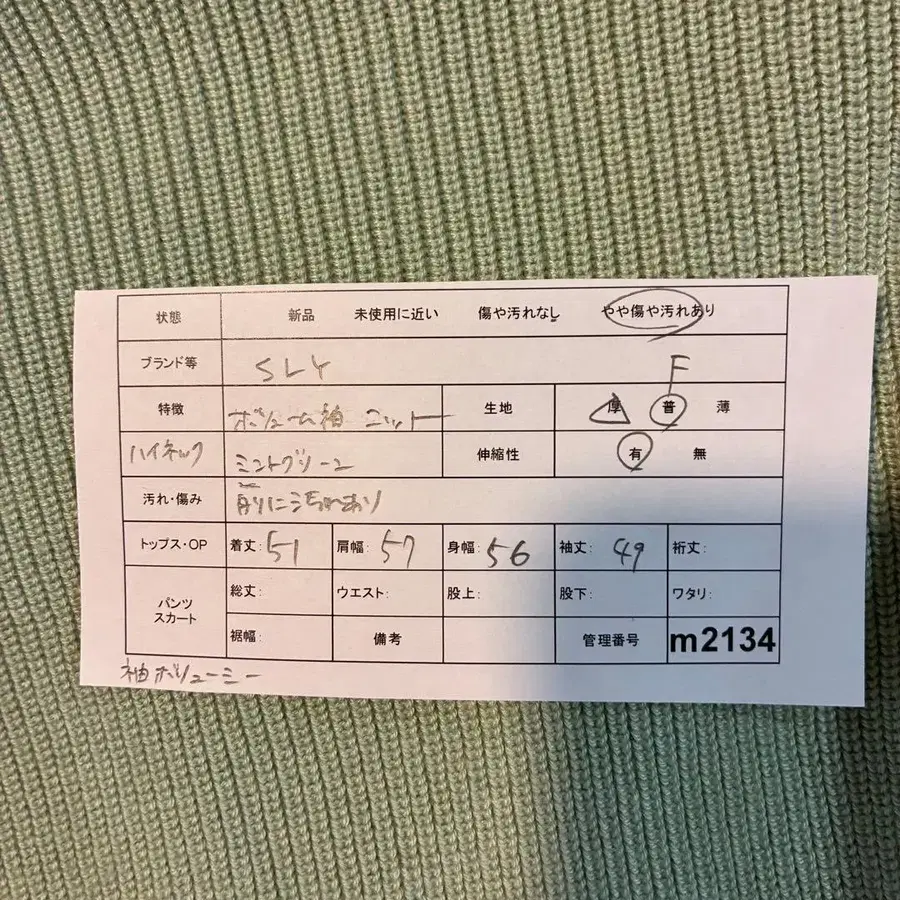 状態 新品 未使用に近い 傷や汚れなし やや傷や汚れあり
ブランド等 SLY F
特徴 ボリューム袖 ニット 生地 厚 普 薄
ハイネック ミントグリーン 伸縮性 有 無
汚れ・傷み 前りに汚れあり
トップス・OP 着丈: 51 肩幅: 57 身幅: 56 袖丈: 49 裄丈:
パンツ 総丈: ウエスト: 股上: 股下: ワタリ:
スカート
裾幅: 備考 管理番号 m2134
袖ボリューミー